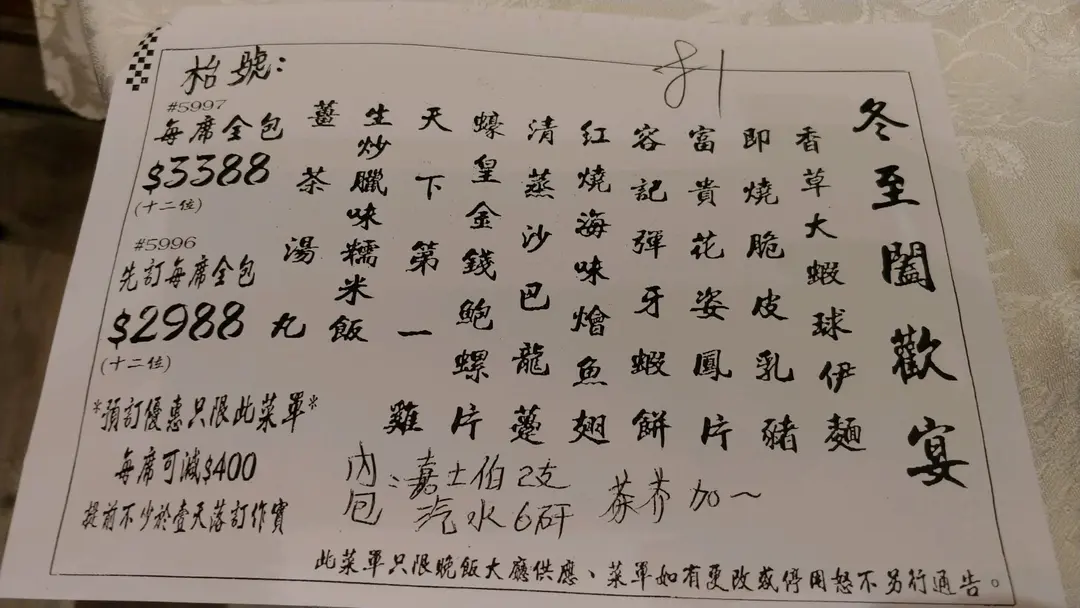 冬至闔歡宴
香草大蝦球伊麵
即燒脆皮乳豬
富貴花姿鳳片
容記彈牙蝦餅
紅燒海味燴魚翅
清蒸沙巴龍躉
蠔皇金錢鮑螺片
天下第一雞
生炒臘味糯米飯
薑茶湯丸
枱號：
#5997
每席全包
$3388
(十二位)
#5996
先訂每席全包
$2988
(十二位)
*預訂優惠只限此菜單*
每席可減$400
提前不少於壹天落訂作實
內包：嘉士伯2支
汽水6砰
茶芥加一
此菜單只限晚飯大廳供應、菜單如有更改或停用恕不另行通告。